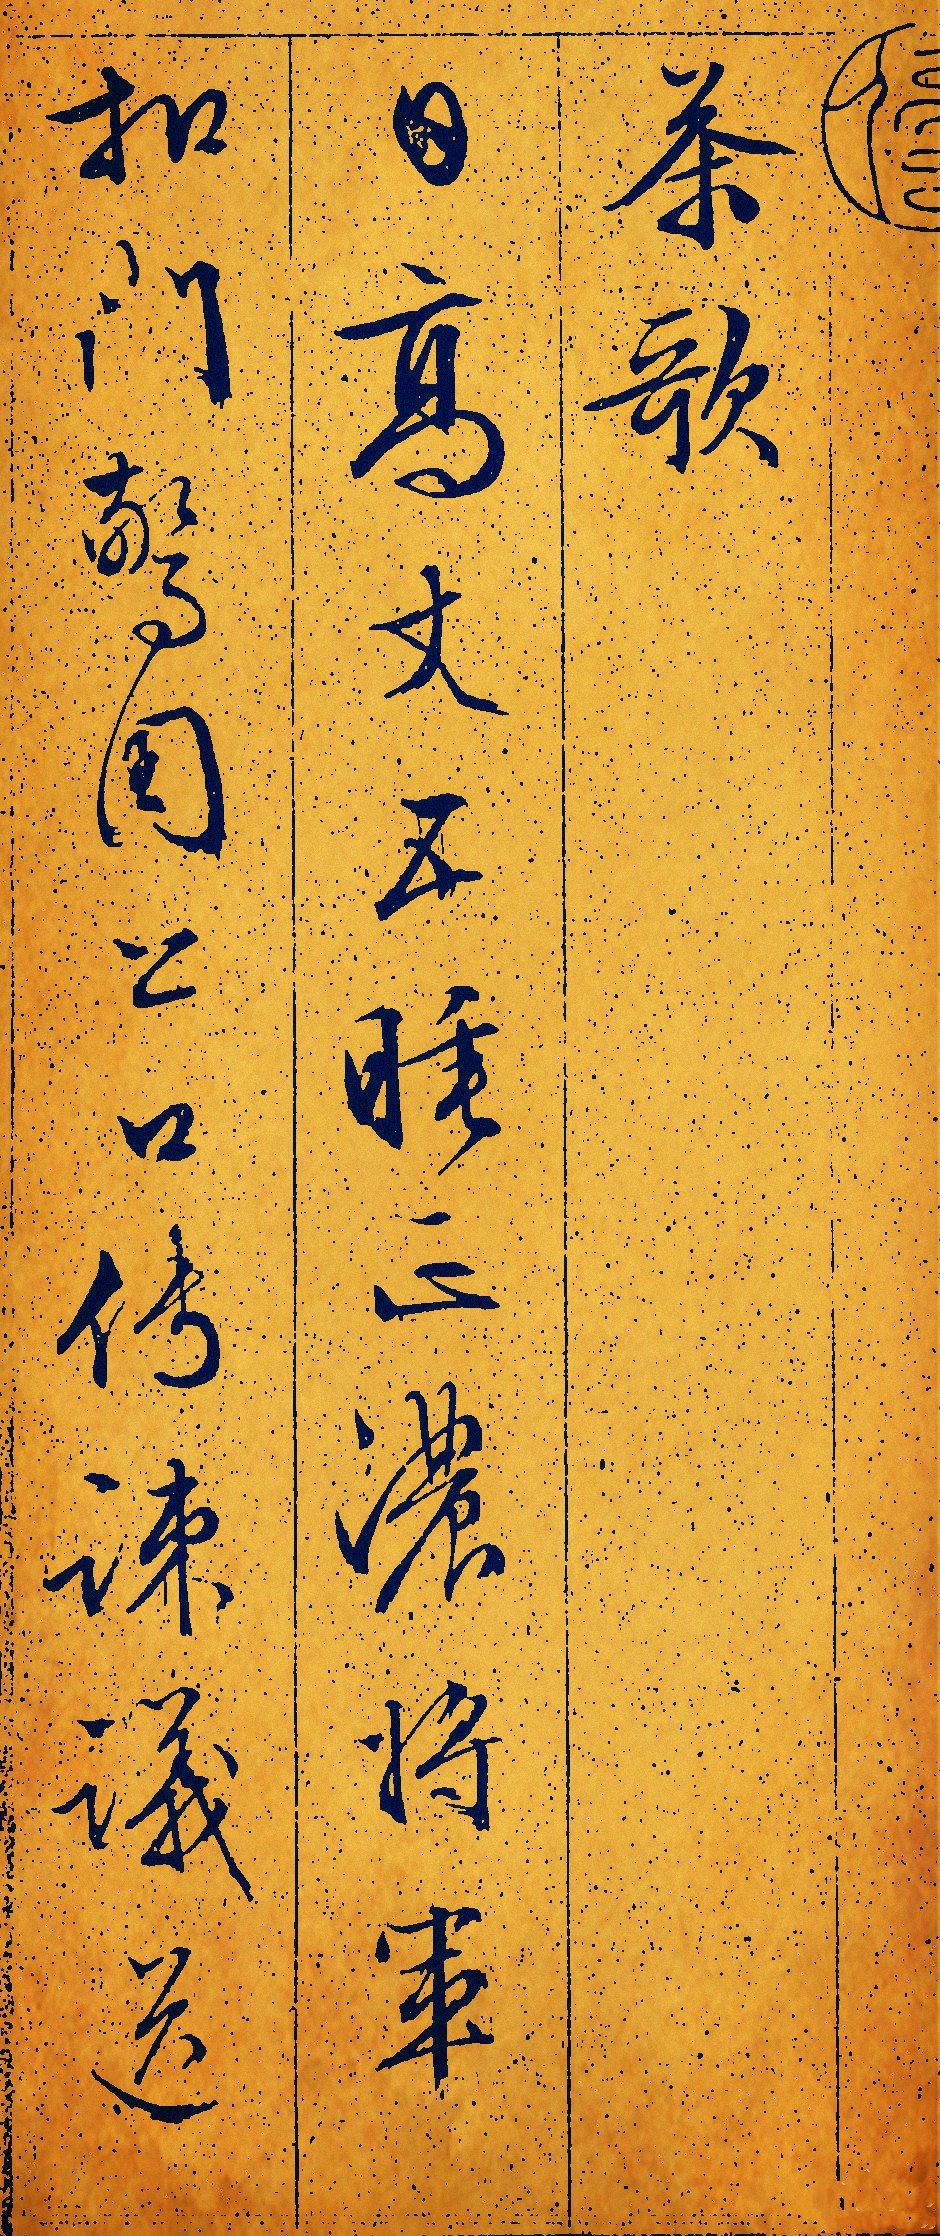 茶歌
日高丈五睡正濃將軍
扣門驚周公口傳諫議送